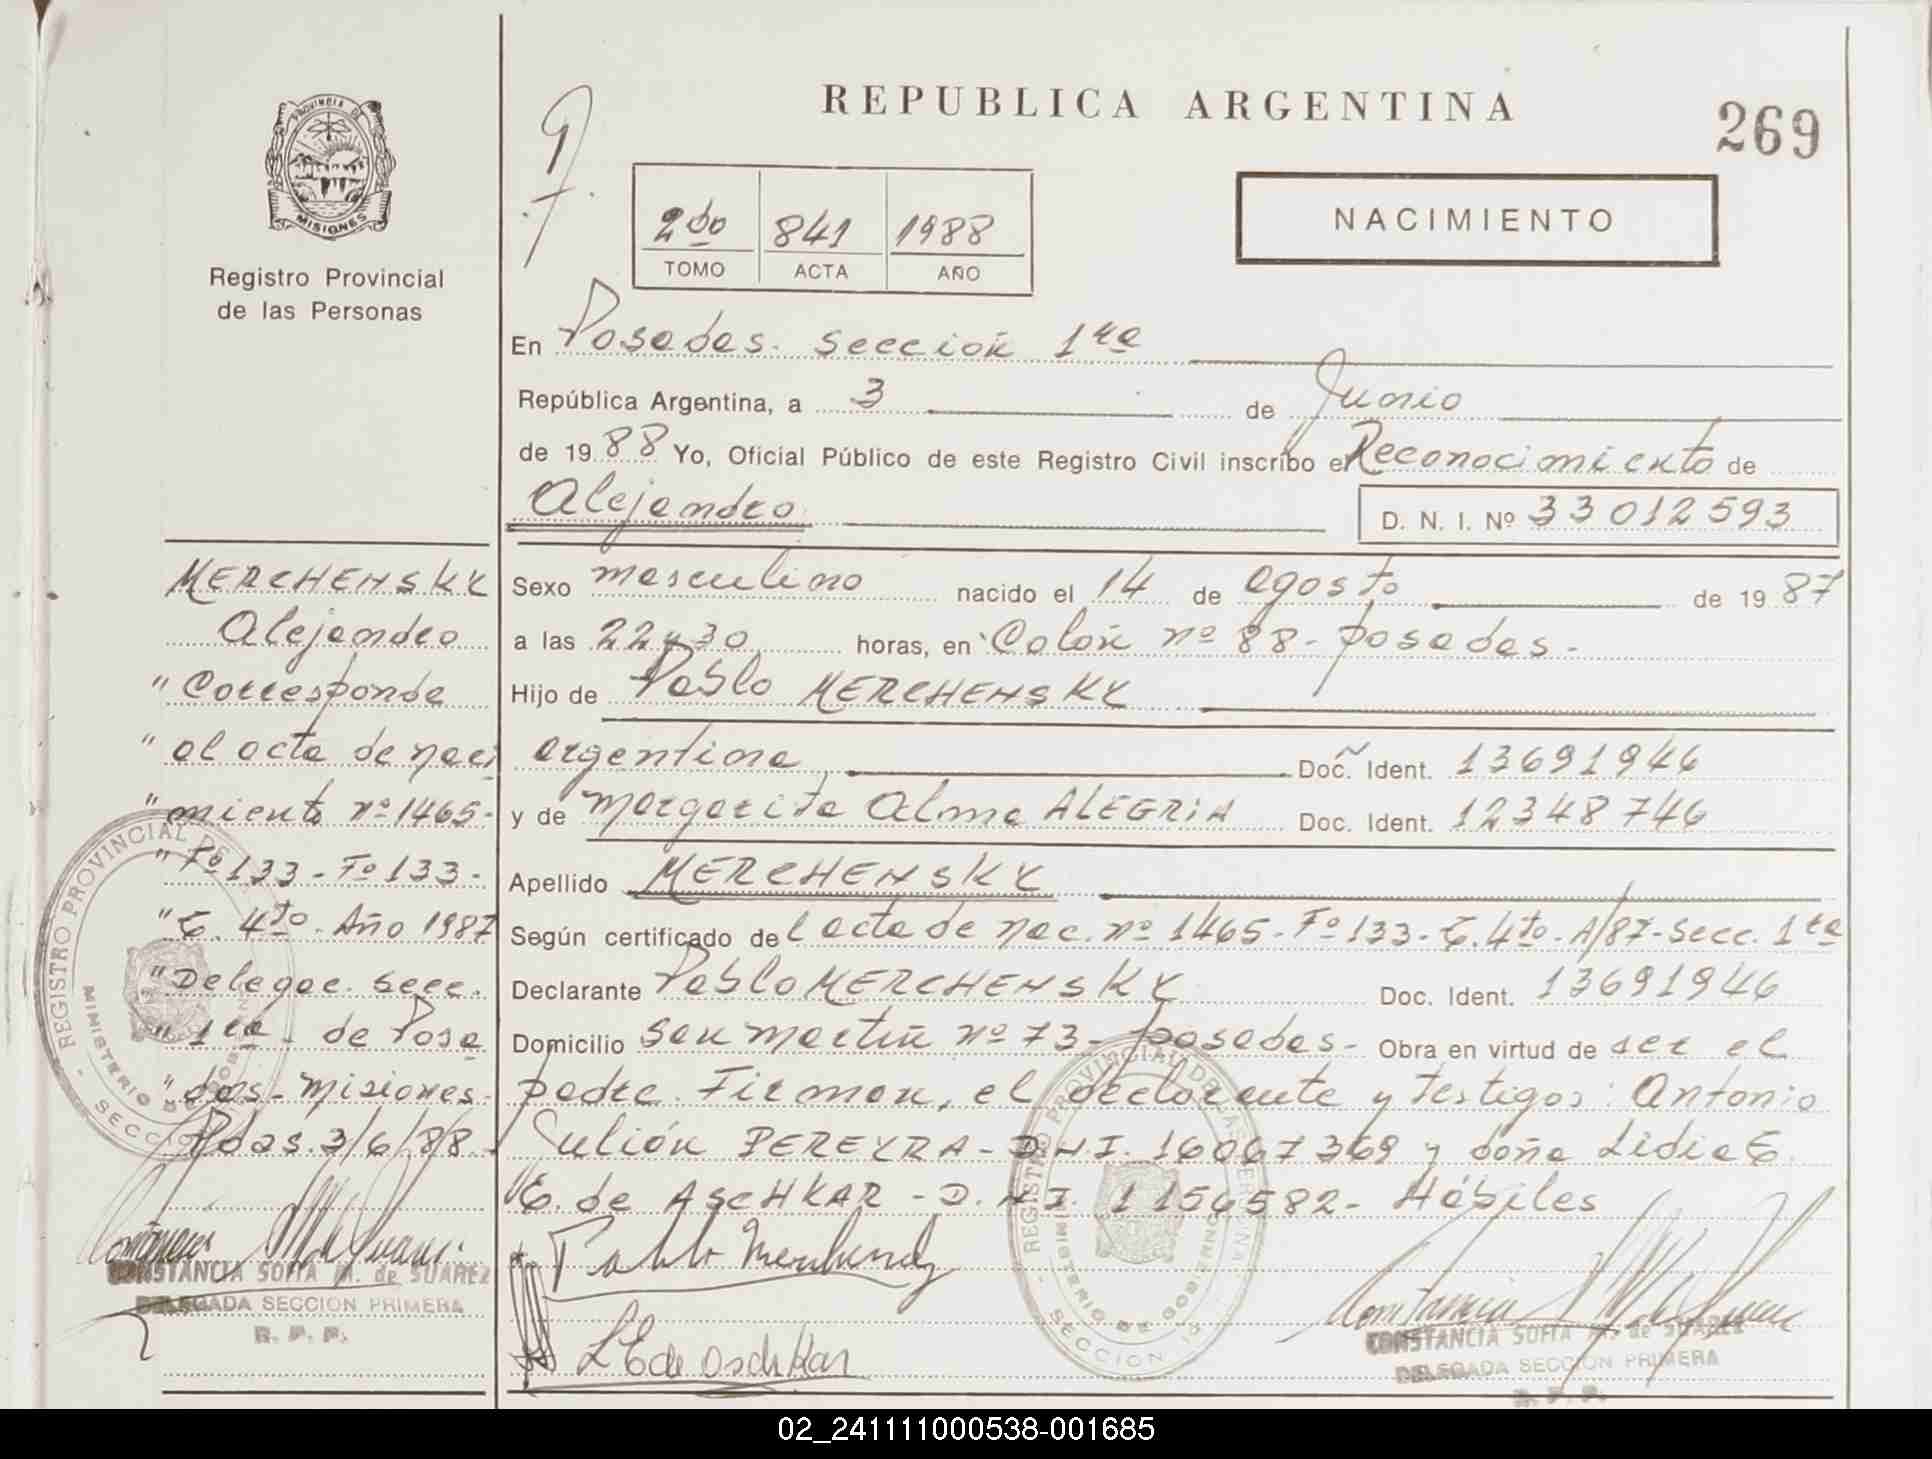 REPUBLICA ARGENTINA
269
PROVINCIA DE
MISIONES
Registro Provincial
de las Personas
2do 841 1988
TOMO ACTA AÑO
NACIMIENTO
En Posadas. Sección 1ra
República Argentina, a 3 de Junio
de 1988 Yo, Oficial Público de este Registro Civil inscribo el Reconocimiento de
Alejandro D. N. I. Nº 33012593
Sexo masculino nacido el 14 de agosto de 1987
a las 22y30 horas, en Colón nº 88- posadas-
Hijo de Pablo MERCHENSKY
argentina Doc. Ident. 13691946
y de Margarita Alma ALEGRIA Doc. Ident. 12348746
Apellido MERCHENSKY
Según certificado del acta de nac. nº 1465- Fº 133- T. 4to- A/87- Secc. 1ra
Declarante Pablo MERCHENSKY Doc. Ident. 13691946
Domicilio San Martín nº 73- posadas- Obra en virtud de ser el
padre. Firman, el declarante y testigos: Antonio
Julián PEREYRA- D.N.I. 16067369 y doña Lidia E.
E. de ASCHKAR - D.N.I. 11156582- Hábiles
MERCHENSKY
Alejandro
"Corresponde
"al acta de naci
"miento nº 1465-
"Fº 133- Fº 133-
"T. 4to- Año 1987
"Delegac. Secc.
"1ra- de Posa
"das- Misiones-
Pdas. 3/6/88.-
CONSTANCIA SOFIA M. de SUAREZ
DELEGADA SECCION PRIMERA
R. P. P.
REGISTRO PROVINCIAL DE
MINISTERIO DE GOBIERNO
SECCION
Pablo Merchensky
LE de Aschkar
REGISTRO PROVINCIAL DE LAS PERSONAS
MINISTERIO DE GOBIERNO
SECCION 1ª
CONSTANCIA SOFIA M. de SUAREZ
DELEGADA SECCION PRIMERA
R. P. P.
02_241111000538-001685